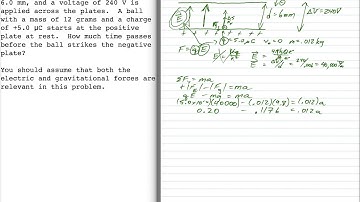 6.0 mm, and a voltage of 240 V is
applied across the plates.  A ball
with a mass of 12 grams and a charge
of +5.0 μC starts at the positive
plate at rest.  How much time passes
before the ball strikes the negative
plate?
You should assume that both the
electric and gravitational forces are
relevant in this problem.
d=6mm ΔV=240V
m=.012kg
ΣF=ma
+|FE|-|Fg|=ma
qE - mg = ma
(5.0x10⁻⁶)(40000)-(.012)(9.8)=(.012)a
0.20 - .1176 = .012a